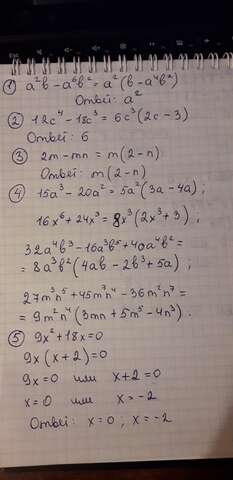 ① a²b - a⁶b² = a²(b - a⁴b²)
Ответ: a²
② 12c⁴ - 18c³ = 6c³(2c - 3)
Ответ: 6
③ 2m - mn = m(2 - n)
Ответ: m(2 - n)
④ 15a³ - 20a² = 5a²(3a - 4a);
16x⁶ + 24x³ = 8x³(2x³ + 3);
32a⁴b³ - 16a³b⁵ + 40a⁴b² =
= 8a³b²(4ab - 2b³ + 5a)
27m³n⁵ + 45m⁷n⁴ - 36m²n⁷ =
= 9m²n⁴(3mn + 5m⁵ - 4n³).
⑤ 9x² + 18x = 0
9x(x + 2) = 0
9x = 0 или x + 2 = 0
x = 0 или x = -2
Ответ: x = 0; x = -2